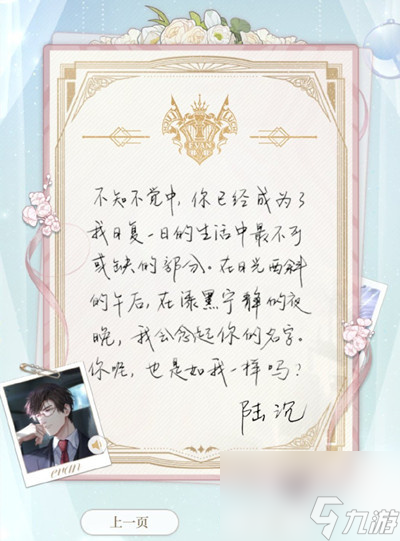 EVAN
不知不觉中，你已经成为了
我日复一日的生活中最不可
或缺的部分。在日光西斜
的午后，在漆黑宁静的夜
晚，我会念起你的名字。
你呢，也是如我一样吗？
陆沉
evan
上一页
九游